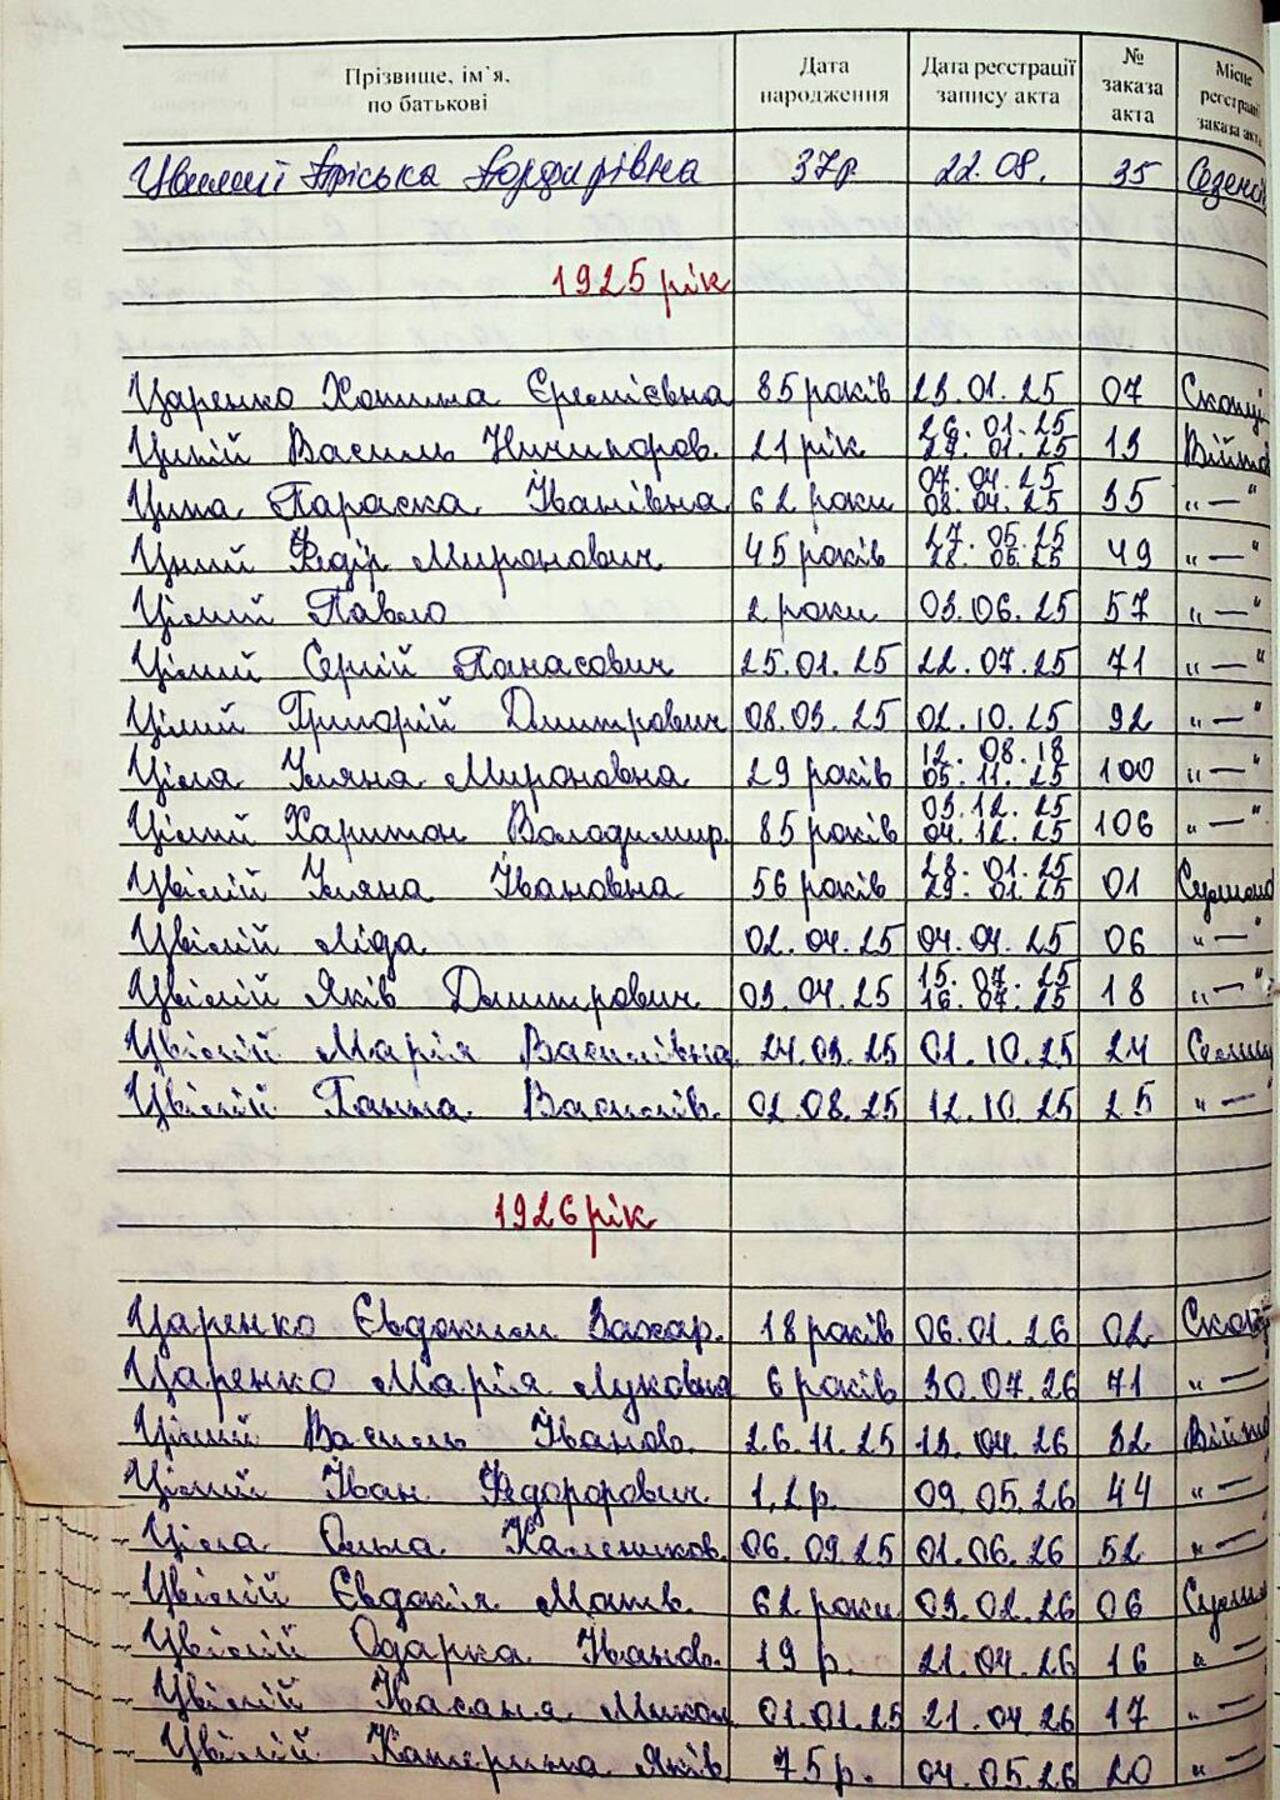 Прізвище, ім'я, по батькові Дата народження Дата реєстрації запису акта № заказа акта Місце реєстрації заказа акта
Цвілий Пріська Порфирівна 37р. 22.08. 35
1925 рік
Царенко Хотина Єремієвна 85 років 23.01.25 07
Цілій Василь Ничипоров. 21 рік 26.01.25 27.01.25 13
Ціла Параска Іванівна 62 роки 07.04.25 08.04.25 35 „—“
Цілий Федір Миронович 45 років 27.05.25 28.05.25 49 „—“
Цілий Павло 2 роки 03.06.25 57 „—“
Цілий Сергій Панасович 25.01.25 22.07.25 71 „—“
Цілий Григорій Дмитрович 08.03.25 02.10.25 92 „—“
Ціла Уляна Мироновна 29 років 12.08.18 05.11.25 100 „—“
Цілий Харитон Володимир. 85 років 03.12.25 04.12.25 106 „—“
Цвілій Уляна Івановна 56 років 28.01.25 29.01.25 01
Цвілій Ліда 02.04.25 04.04.25 06 „—“
Цвілій Яків Дмитрович 03.04.25 15.07.25 16.07.25 18 „—“
Цвілій Марія Василівна 24.09.25 01.10.25 24
Цвілій Ганна Василів. 02.08.25 12.10.25 25 „—“
1926 рік
Царенко Євдоким Захар. 18 років 06.01.26 02
Царенко Марія Луковна 6 років 30.07.26 71 „—“
Цілий Василь Іванов. 26.11.25 13.04.26 32
Цілий Іван Федорович. 1,2р. 09.05.26 44 „—“
Ціла Ольга Калеников. 06.09.25 01.06.26 52 „—“
Цвілій Євдокія Матв. 62 роки 03.02.26 06
Цвілій Одарка Іванов. 19 р. 21.04.26 16 „—“
Цвілій Микол 01.01.25 21.04.26 17 „—“
Цвілій Катерина Яків 75р. 04.05.26 20 „—“